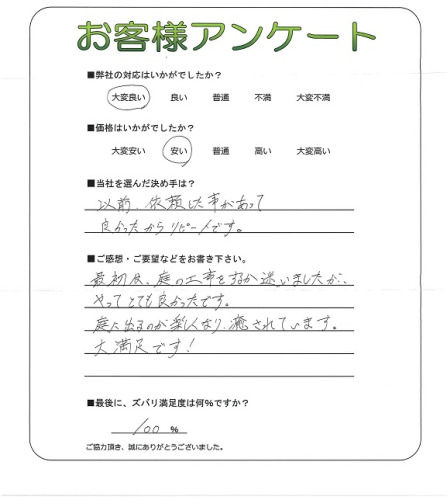 お客様アンケート
■弊社の対応はいかがでしたか？
大変良い 良い 普通 不満 大変不満
■価格はいかがでしたか？
大変安い 安い 普通 高い 大変高い
■当社を選んだ決め手は？
以前、依頼した事があって
良かったからリピートです。
■ご感想・ご要望などをお書き下さい。
最初は、庭の工事をするか迷いましたが、
やってとても良かったです。
庭に出るのが楽しくなり、癒されています。
大満足です！
■最後に、ズバリ満足度は何%ですか？
100 %
ご協力頂き、誠にありがとうございました。